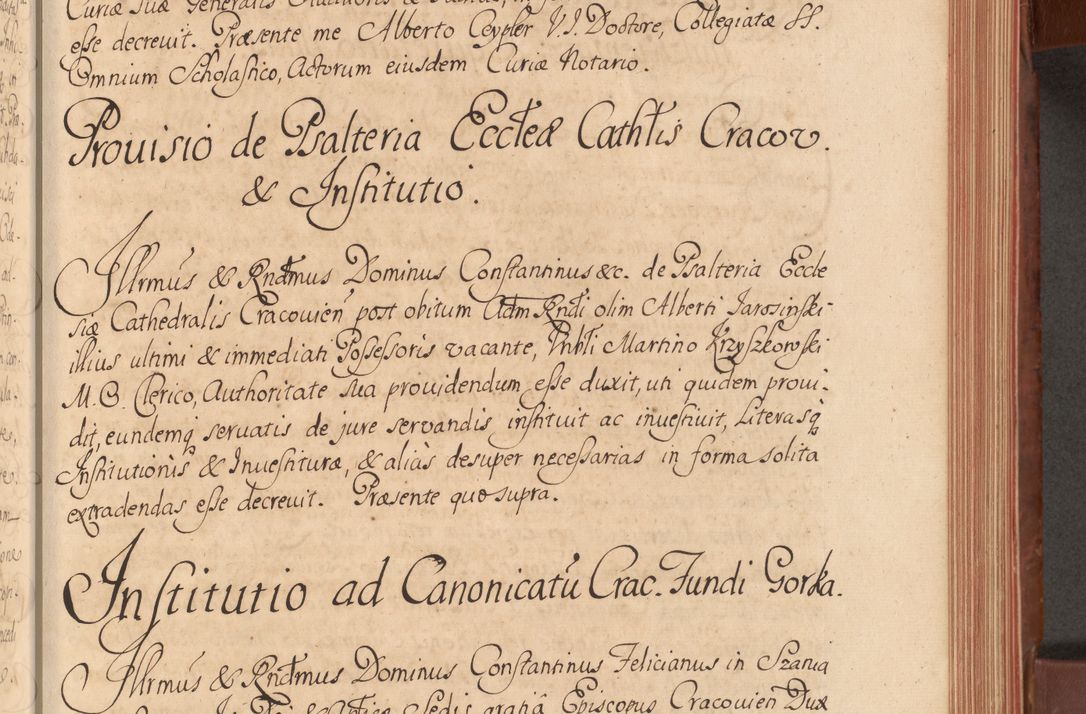 esse decreuit. Præsente me Alberto Ceypler V. J. Doctore, Collegiatæ SS.
Omnium Scholastico, Actorum eiusdem Curiæ Notario.
Prouisio de Psalteria Eccłeæ Cathłis Cracov.
& Institutio.
Illrmus & Rndmus Dominus Constantinus &c. de Psalteria Eccle
siæ Cathedralis Cracouien post obitum Adm Rndi olim Alberti Jarosinski
illius ultimi & immediati Possessoris vacante, Martino Krzyszkowski
M. C. Clerico, Authoritate sua providendum esse duxit, uti quidem provi-
dit, eundemq servatis de jure servandis instituit ac investivit, Literasq
Institutionis & Investituræ, & alias desuper necessarias in forma solita
extradendas esse decreuit. Præsente quo supra.
Institutio ad Canonicatu Crac. Fundi Gorka.
Illrmus & Rndmus Dominus Constantinus Felicianus in Szania
& Aplicæ Sedis gratia Episcopus Cracovien Dux